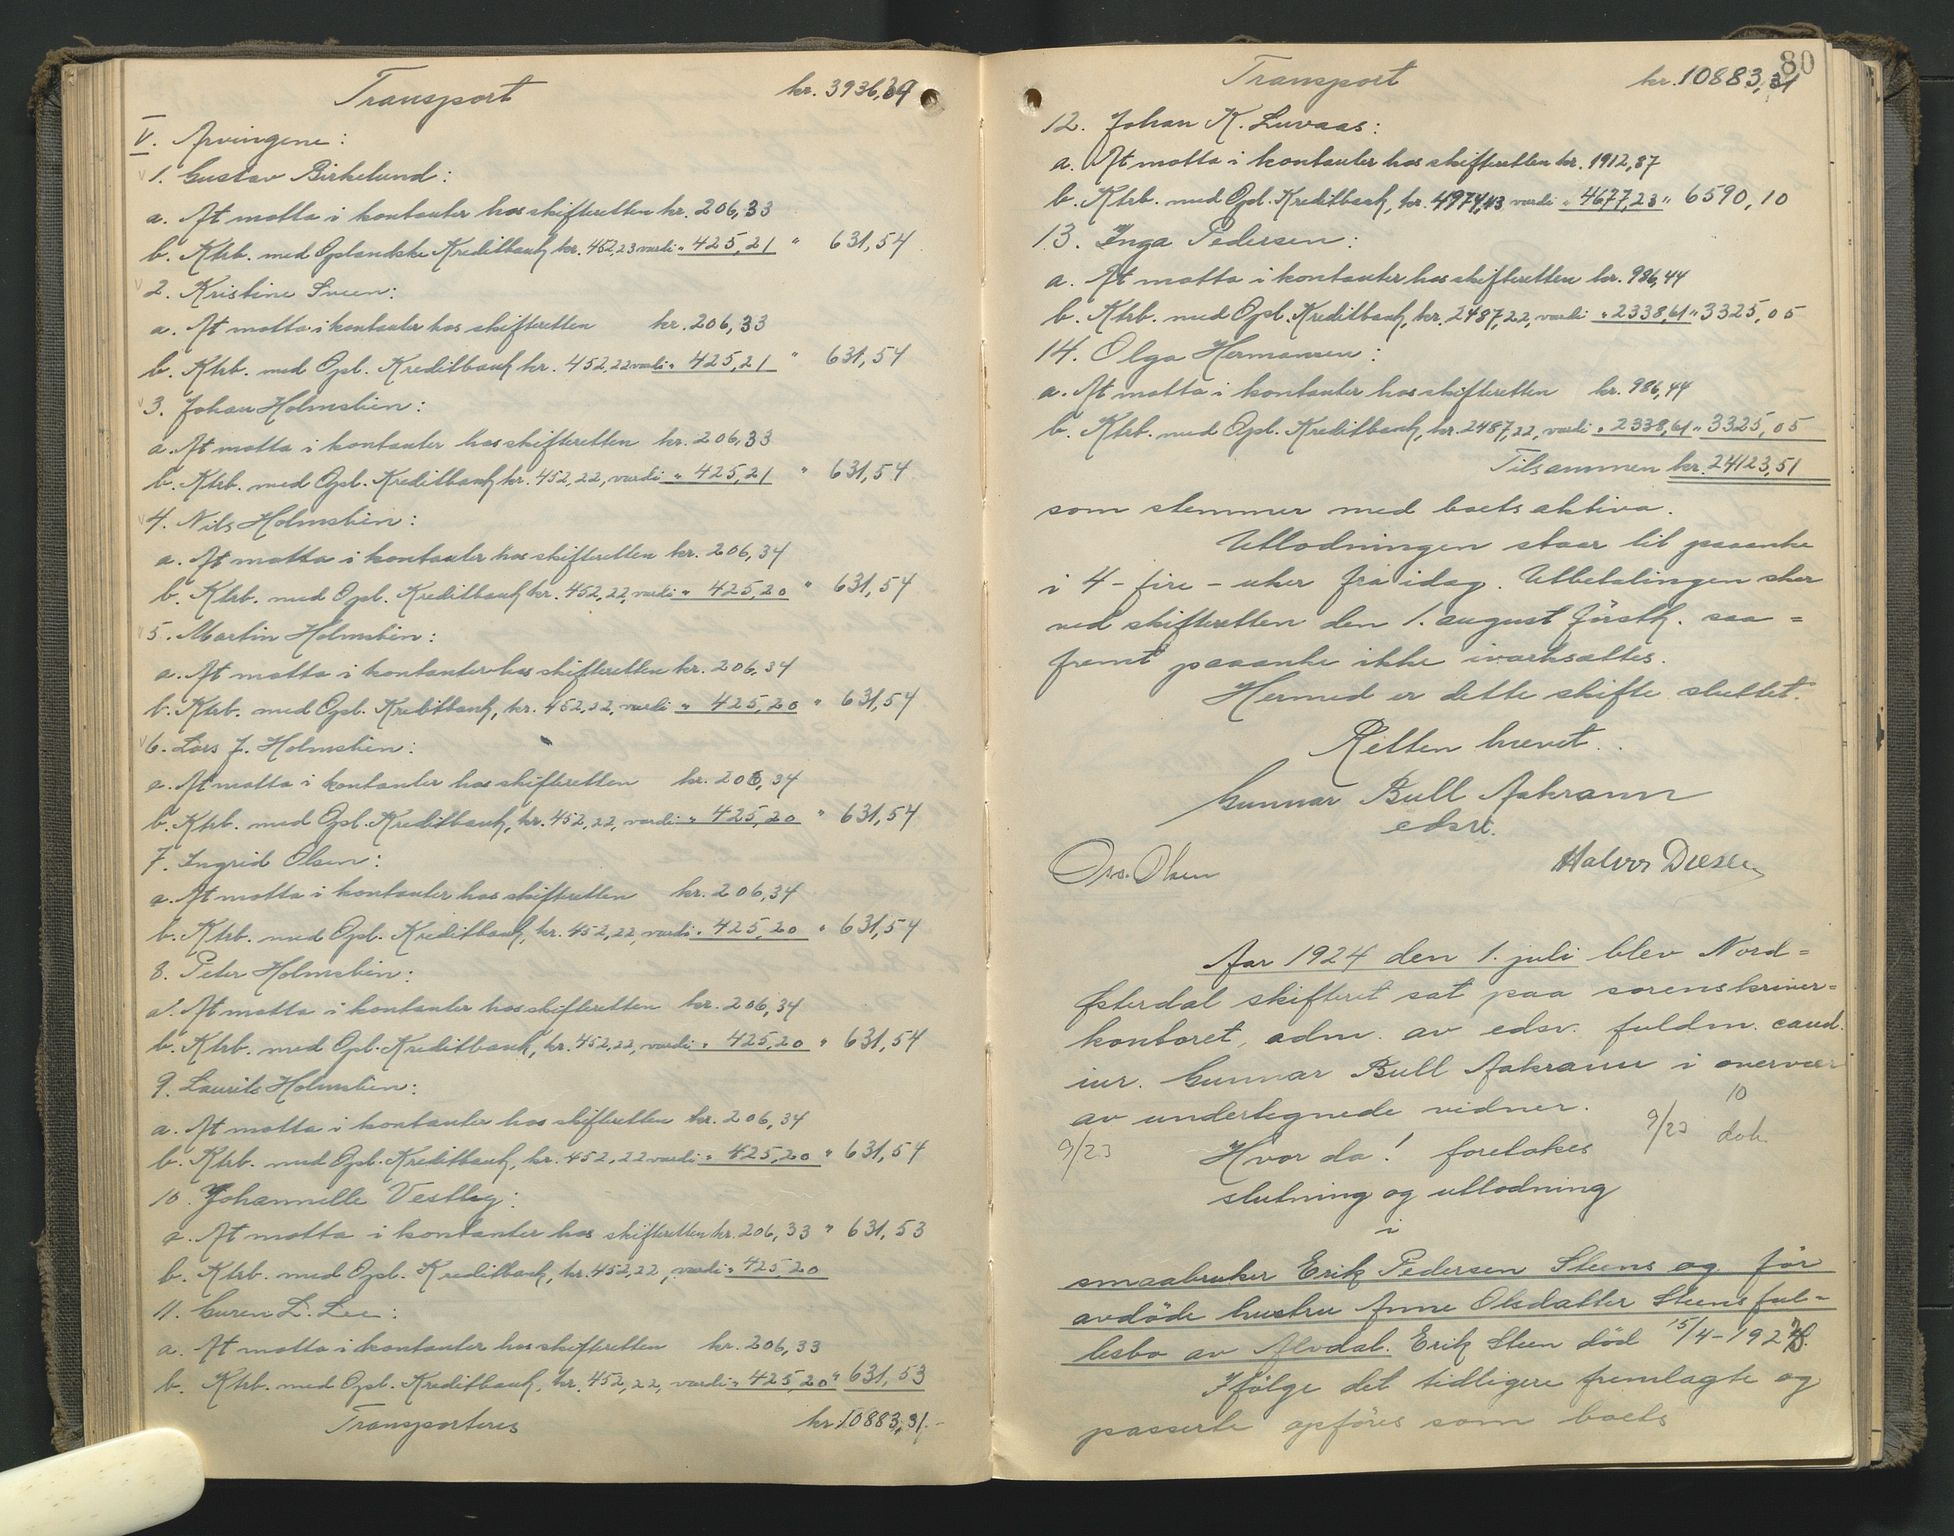 Transport kr. 3936,39
V. Arvingene:
1. Gustav Birkelund:
a. At motta i kontanter hos skifteretten kr. 206,33
b. Ktrb. med Oplandske Kreditbank, kr. 452,23 værdi " 425,21 " 631,54
2. Kristine Sveen:
a. At motta i kontanter hos skifteretten kr. 206,33
b. Ktrb. med Opl. Kreditbank kr. 452,22 værdi " 425,21 " 631,54
3. Johan Holmstien:
a. At motta i kontanter hos skifteretten kr. 206,33
b. Ktrb. med Opl. Kreditbank kr. 452,22, værdi " 425,21 " 631,54
4. Nils Holmstien:
a. At motta i kontanter hos skifteretten kr. 206,34
b. Ktrb. med Opl. Kreditbank kr. 452,22, værdi " 425,20 " 631,54
5. Martin Holmstien:
a. At motta i kontanter hos skifteretten kr. 206,34
b. Ktrb. med Opl. Kreditbank, kr. 452,22, værdi " 425,20 " 631,54
6. Lars J. Holmstien:
a. At motta i kontanter hos skifteretten kr. 206,34
b. Ktrb. med Opl. Kreditbank, kr. 452,22, værdi " 425,20 " 631,54
7. Ingrid Olsen:
a. At motta i kontanter hos skifteretten kr. 206,34
b. Ktrb. med Opl. Kreditbank, kr. 452,22, værdi " 425,20 " 631,54
8. Peter Holmstien:
a. At motta i kontanter hos skifteretten kr. 206,34
b. Ktrb. med Opl. Kreditbank, kr. 452,22, værdi " 425,20 " 631,54
9. Laurits Holmstien:
a. At motta i kontanter hos skifteretten kr. 206,34
b. Ktrb. med Opl. Kreditbank, kr. 452,22 værdi " 425,20 " 631,54
10. Johannelle Vestby:
a. At motta i kontanter hos skifteretten kr. 206,33 " 631,53
b. Ktrb. med Opl. Kreditbank, kr. 452,22, værdi " 425,20
11. Guren L. Lee:
a. At motta i kontanter hos skifteretten kr. 206,33
b. Ktrb. med Opl. Kreditbank, kr. 452,22, værdi " 425,20 " 631,53
Transporteres kr. 10883,31.
80
Transport kr. 10883,31
12. Johan K. Luvaas:
a. At motta i kontanter hos skifteretten kr. 1912,87
b. Ktrb. med Opl. Kreditbank, kr. 4974,43 værdi " 4677,23 " 6590,10
13. Inga Pedersen:
a. At motta i kontanter hos skifteretten kr. 986,44
b. Ktrb. med Opl. Kreditbank, kr. 2487,22, værdi " 2338,61 " 3325,05
14. Olga Hermansen:
a. At motta i kontanter hos skifteretten kr. 986,44
b. Ktrb. med Opl. Kreditbank, kr. 2487,22, værdi " 2338,61 " 3325,05
Tilsammen kr. 24123,51
som stemmer med boets aktiva.
Utlodningen staar til paaanke
i 4 - fire - uker fra idag. Utbetalingen sker
ved skifteretten den 1. august førstk. saa=
fremt paaanke ikke iverksættes.
Hermed er dette skifte sluttet.
Retten hævet.
Gunnar Bull Aakrann
edsv.
Osv. Olsen Halvor Dæsen
Aar 1924 den 1. juli blev Nord=
østerdal skifteret sat paa sorenskriver=
kontoret, adm. av edsv. fuldm. cand.
iur. Gunnar Bull Aakrann i overvær
av undertegnede vidner.
9/23 Hvor da! foretokes 9/23 10 dok.
slutning og utlodning
i
smaabruker Erik Pedersen Steens og før
avdøde hustru Anne Olsdatter Steens fæl=
lesbo av Alvdal. Erik Steen død 15/4-1923.
Ifølge det tidligere fremlagte og
passerte opføres som boets